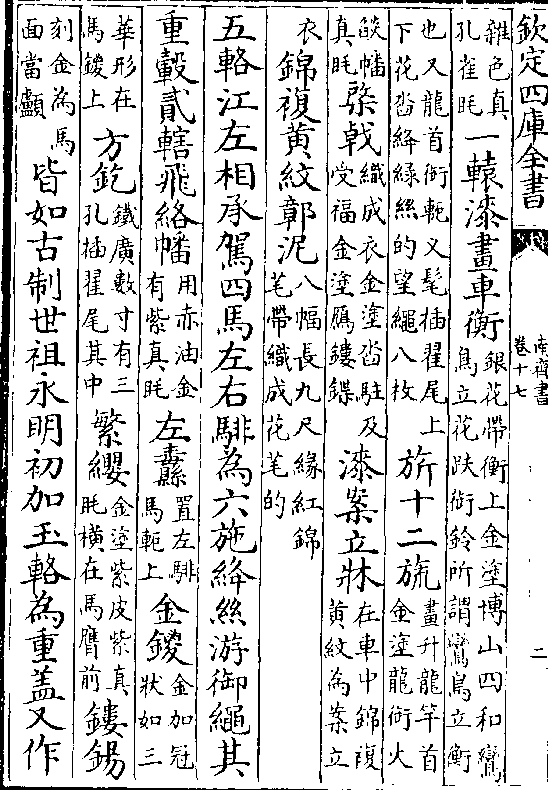 欽定四庫全書
南齊書
卷十七
二
雜色真
孔雀毦
一轅漆畫車衡
銀花帶衡上金塗博山四和鸞
鳥立花趺銜鈴所謂鸞鳥立衡
也又龍首銜軛叉髦插翟尾上
下花沓絳緑絲的望繩八枚
旂十二旒
畫升龍竿首
金塗龍銜火
燄幡
真毦
棨戟
織成衣金塗沓駐及
受福金塗鴈鏤鍱
漆案立牀
在車中錦複
黄紋為案立
衣
錦複黄紋鄣泥
八幅長九尺緣紅錦
芼帶織成花芼的
五輅江左相承駕四馬左右騑為六施絳絲游御繩其
重轂貳轄飛絡幡
用赤油金
有紫真毦
左纛
置左騑
馬軛上
金鍐
金加冠
狀如三
華形在
馬鍐上
方釳
鐵廣數寸有三
孔插翟尾其中
繁纓
金塗紫皮紫真
毦横在馬膺前
鏤錫
刻金為馬
面當顱
皆如古制世祖永明初加玉輅為重盖又作